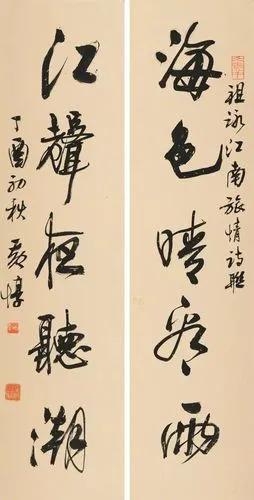 海色晴看雨
祖詠江南旅情詩聯
江聲夜聽潮
丁酉初秋 黃惇